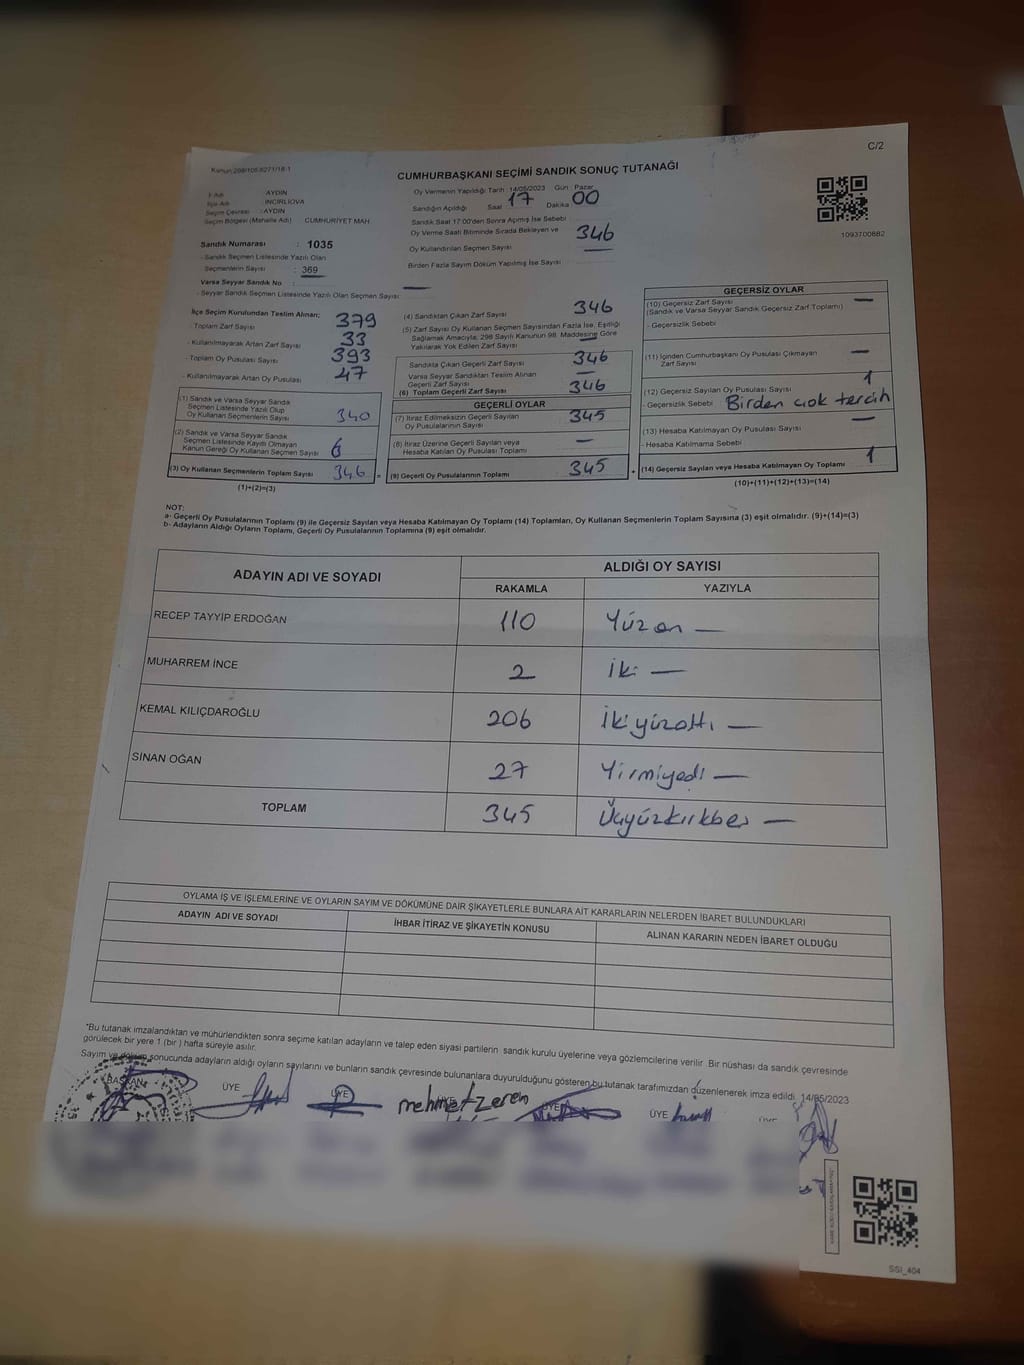 C/2
Kanun:298/105,6271/18-1
CUMHURBAŞKANI SEÇİMİ SANDIK SONUÇ TUTANAĞI
İl Adı : AYDIN
İlçe Adı : İNCİRLİOVA
Seçim Çevresi : AYDIN
Seçim Bölgesi (Mahalle Adı) : CUMHURİYET MAH.
Sandık Numarası : 1035
- Sandık Seçmen Listesinde Yazılı Olan
Seçmenlerin Sayısı : 369
Varsa Seyyar Sandık No : —
- Seyyar Sandık Seçmen Listesinde Yazılı Olan Seçmen Sayısı:
Oy Vermenin Yapıldığı Tarih : 14/05/2023 Gün : Pazar
Sandığın Açıldığı Saat 17 Dakika 00
Sandık Saat 17:00'den Sonra Açılmış İse Sebebi :
Oy Verme Saati Bitiminde Sırada Bekleyen ve
Oy Kullandırılan Seçmen Sayısı : 346
Birden Fazla Sayım Döküm Yapılmış İse Sayısı : —
1093700882
İlçe Seçim Kurulundan Teslim Alınan;
- Toplam Zarf Sayısı 379
- Kullanılmayarak Artan Zarf Sayısı 33
- Toplam Oy Pusulası Sayısı 393
- Kullanılmayarak Artan Oy Pusulası 47
(1) Sandık ve Varsa Seyyar Sandık
Seçmen Listesinde Yazılı Olup
Oy Kullanan Seçmenlerin Sayısı 340
(2) Sandık ve Varsa Seyyar Sandık
Seçmen Listesinde Kayıtlı Olmayan
Kanun Gereği Oy Kullanan Seçmen Sayısı 6
(3) Oy Kullanan Seçmenlerin Toplam Sayısı 346
(1)+(2)=(3)
(4) Sandıktan Çıkan Zarf Sayısı 346
(5) Zarf Sayısı Oy Kullanan Seçmen Sayısından Fazla İse, Eşitliği
Sağlamak Amacıyla, 298 Sayılı Kanunun 98. Maddesine Göre
Yakılarak Yok Edilen Zarf Sayısı —
Sandıkta Çıkan Geçerli Zarf Sayısı 346
Varsa Seyyar Sandıktan Teslim Alınan
Geçerli Zarf Sayısı —
(6) Toplam Geçerli Zarf Sayısı 346
GEÇERLİ OYLAR
(7) İtiraz Edilmeksizin Geçerli Sayılan
Oy Pusulalarının Sayısı 345
(8) İtiraz Üzerine Geçerli Sayılan veya
Hesaba Katılan Oy Pusulası Toplamı —
(9) Geçerli Oy Pusulalarının Toplamı 345
GEÇERSİZ OYLAR
(10) Geçersiz Zarf Sayısı —
(Sandık ve Varsa Seyyar Sandık Geçersiz Zarf Toplamı)
- Geçersizlik Sebebi
(11) İçinden Cumhurbaşkanı Oy Pusulası Çıkmayan
Zarf Sayısı —
(12) Geçersiz Sayılan Oy Pusulası Sayısı 1
- Geçersizlik Sebebi Birden çok tercih
(13) Hesaba Katılmayan Oy Pusulası Sayısı —
- Hesaba Katılmama Sebebi
(14) Geçersiz Sayılan veya Hesaba Katılmayan Oy Toplamı 1
(10)+(11)+(12)+(13)=(14)
NOT:
a- Geçerli Oy Pusulalarının Toplamı (9) ile Geçersiz Sayılan veya Hesaba Katılmayan Oy Toplamı (14) Toplamları, Oy Kullanan Seçmenlerin Toplam Sayısına (3) eşit olmalıdır. (9)+(14)=(3)
b- Adayların Aldığı Oyların Toplamı, Geçerli Oy Pusulalarının Toplamına (9) eşit olmalıdır.
ADAYIN ADI VE SOYADI ALDIĞI OY SAYISI
RAKAMLA YAZIYLA
RECEP TAYYİP ERDOĞAN 110 Yüzon —
MUHARREM İNCE 2 İki —
KEMAL KILIÇDAROĞLU 206 İkiyüzaltı —
SİNAN OĞAN 27 Yirmiyedi —
TOPLAM 345 Üçyüzkırkbeş —
OYLAMA İŞ VE İŞLEMLERİNE VE OYLARIN SAYIM VE DÖKÜMÜNE DAİR ŞİKAYETLERLE BUNLARA AİT KARARLARIN NELERDEN İBARET BULUNDUKLARI
ADAYIN ADI VE SOYADI İHBAR İTİRAZ VE ŞİKAYETİN KONUSU ALINAN KARARIN NEDEN İBARET OLDUĞU
*Bu tutanak imzalandıktan ve mühürlendikten sonra seçime katılan adayların ve talep eden siyasi partilerin sandık kurulu üyelerine veya gözlemcilerine verilir. Bir nüshası da sandık çevresinde
görülecek bir yere 1 (bir ) hafta süreyle asılır.
Sayım ve döküm sonucunda adayların aldığı oyların sayılarını ve bunların sandık çevresinde bulunanlara duyurulduğunu gösteren bu tutanak tarafımızdan düzenlenerek imza edildi. 14/05/2023
BAŞKAN ÜYE ÜYE mehmet zeren ÜYE ÜYE ÜYE
SSİ_404